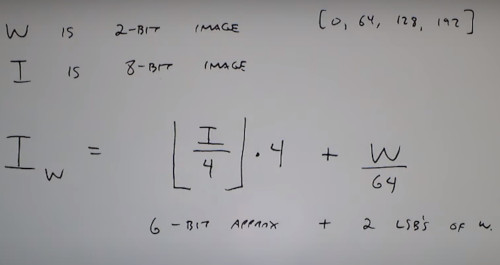 W IS 2-BIT IMAGE [0, 64, 128, 192]
I IS 8-BIT IMAGE
I_W = ⌊I/4⌋ · 4 + W/64
6-BIT APPROX + 2 LSB'S OF W.